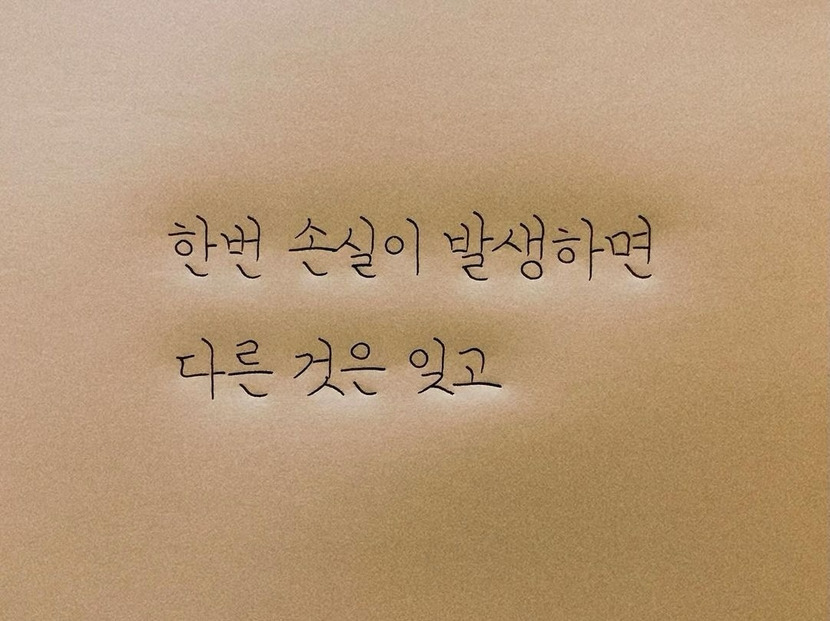 한번 손실이 발생하면
다른 것은 잊고